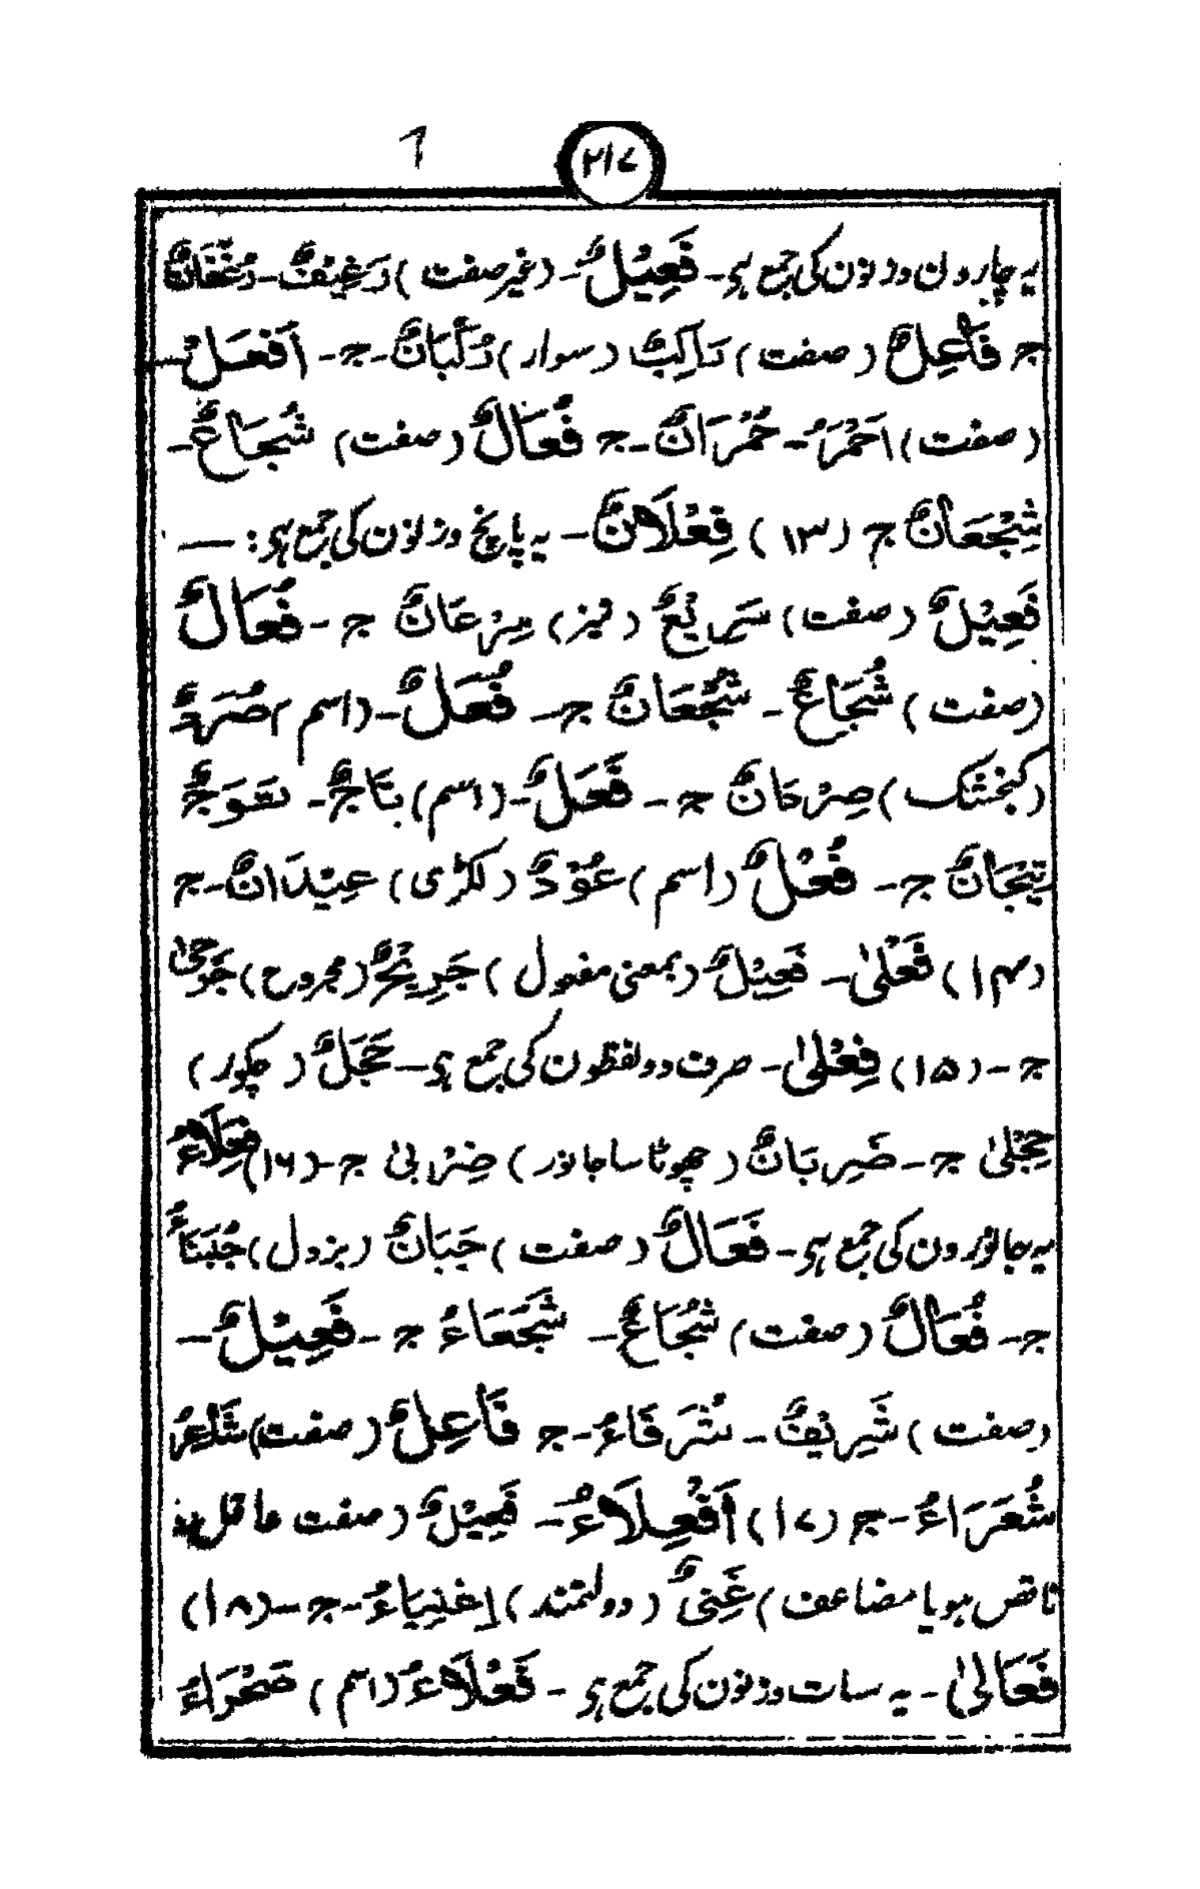 ۲۱۷
یہ چارون وزنون کی جمع ہی۔ فَعِیْلٌ۔ (غیر صفت) رَغِیْفٌ۔ رُغْفَانٌ
ج فَاعِلٌ (صفت) رَاکِبٌ (سوار) رُکْبَانٌ۔ ج۔ اَفْعَلُ۔
(صفت) اَحْمَرُ۔ حُمْرَانٌ۔ ج فُعَالٌ (صفت) شُجَاعٌ۔
شِجْعَانٌ ج (۱۳) فِعْلَانٌ۔ یہ پانچ وزنون کی جمع ہی: ۔
فَعِیْلٌ (صفت) سَرِیْعٌ (تیز) سِرْعَانٌ ج۔ فُعَالٌ
(صفت) شُجَاعٌ۔ شُجْعَانٌ ج۔ فُعَلٌ۔ (اسم) صُرَدٌ
(کنجشک) صِرْدَانٌ ج۔ فَعَلٌ۔ (اسم) تَاجٌ۔ تَوَجٌ
تِیْجَانٌ ج۔ فُعْلٌ (اسم) عُوْدٌ (لکڑی) عِیْدَانٌ۔ ج
(۱۴) فَعْلیٰ۔ فَعِیْلٌ (بمعنی مفعول) جَرِیْحٌ (مجروح) جَرْحیٰ
ج۔ (۱۵) فِعْلیٰ۔ صرف دو لفظون کی جمع ہی۔ حَجَلٌ (چکور)
حِجْلیٰ ج۔ ضَرِبَانٌ (چھوٹا سا جانور) ضِرْبیٰ ج۔ (۱۶) فُعَلَاءُ
یہ چار وزنون کی جمع ہی۔ فَعَالٌ (صفت) جَبَانٌ (بزدل) جُبَنَاءُ
ج۔ فُعَالٌ (صفت) شُجَاعٌ۔ شُجَعَاءُ ج۔ فَعِیْلٌ۔
(صفت) شَرِیْفٌ۔ شُرَفَاءُ۔ ج فَاعِلٌ (صفت) شَاعِرٌ
شُعَرَاءُ۔ ج (۱۷) اَفْعِلَاءُ۔ فَعِیْلٌ (صفت عاقل
ناقص ہو یا مضاعف) غَنِیٌّ (دولتمند) اَغْنِیَاءُ۔ ج۔ (۱۸)
فَعَالیٰ۔ یہ سات وزنون کی جمع ہی۔ فَعْلَاءُ (اسم) صَحْرَاءُ